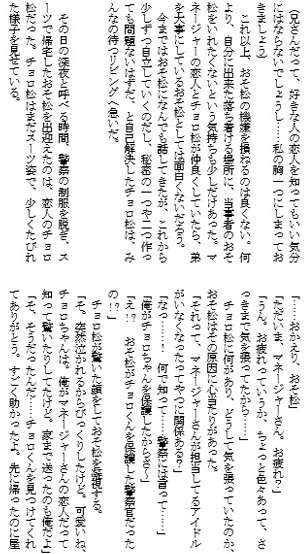 (兄さんだって、好きな人の恋人を知ってもいい気分
にはならないでしょうし……私の胸一つにしまってお
きましょう)
　これ以上、おそ松の機嫌を損ねるのは良くない。何
より、自分に出来た落ち着ける場所に、当事者のおそ
松をいれたくないという気持ちも少しだけあった。マ
ネージャーの恋人とチョロ松が仲良くしていたら、弟
を大事にしているおそ松としては面白くないだろう。
　今まではおそ松になんでも話してきたが、これから
少しずつ自立していくのだし、秘密の一つや二つ作っ
ても問題ないはずだ、と自己解決したチョロ松は、み
んなの待つリビングへ急いだ。
　その日の深夜と呼べる時間、警察の制服を脱ぎ、ス
ーツで帰宅したおそ松を出迎えたのは、恋人のチョロ
松だった。チョロ松はまだスーツ姿で、少しくたびれ
た様子を見せている。
「……おかえり、おそ松」
「ただいま、マネージャーさん。お疲れ?」
「うん。お疲れっていうか、ちょっと色々あって、さ
っきまで気を張ってたから……」
　チョロ松に何があり、どうして気を張っていたのか、
おそ松はその原因に心当たりがあった。
「それって、マネージャーさんが担当してるアイドル
がいなくなったってやつに関係ある?」
「なっ……!　何で知って……警察には言って……」
「俺がチョロちゃんを保護したからさぁ」
「え!?　おそ松がチョロくんを保護した警察官だった
の!?」
　チョロ松が驚いた顔をしておそ松を凝視する。
「そ。突然泣かれるからびっくりしたけど。可愛いね、
チョロちゃんは。俺がマネージャーさんの恋人だって
知って驚いたりしてたけど。家まで送ったのも俺だよ」
「そ、そうだったんだ……チョロくんを見つけてくれ
てありがとう。すごく助かったよ。先に帰ったのに屋